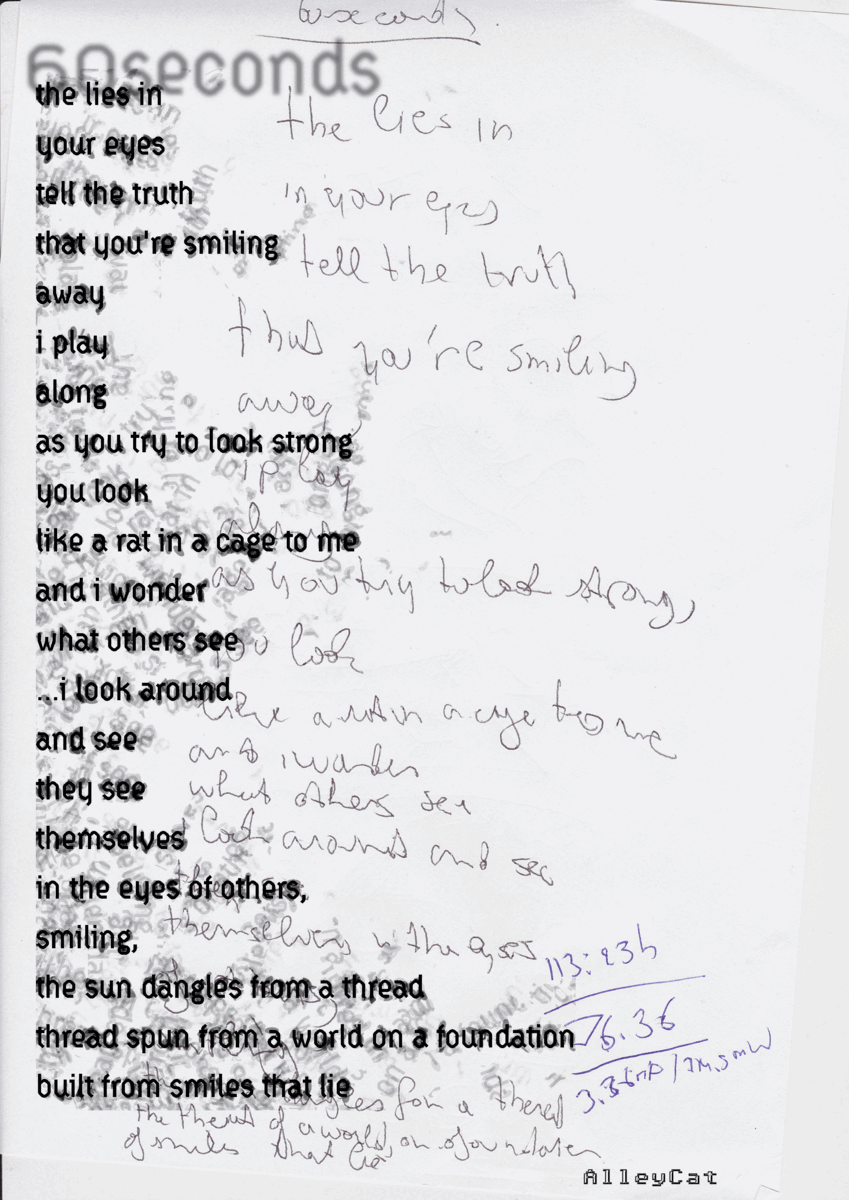 60seconds.
60seconds
the lies in
your eyes
tell the truth
that you're smiling
away
i play
along
as you try to look strong
you look
like a rat in a cage to me
and i wonder
what others see
...i look around
and see
they see
themselves
in the eyes of others,
smiling,
the sun dangles from a thread
thread spun from a world on a foundation
built from smiles that lie
the lies in
in your eyes
tell the truth
that you're smiling
away,
i play
along
as you try to look strong,
you look
like a rat in a cage to me
and i wonder
what others see
look around and see
themselves in the eyes
dangles from a thread
the thread of a world, on a foundation
of smiles that lie
113:23h
76.36
AlleyCat